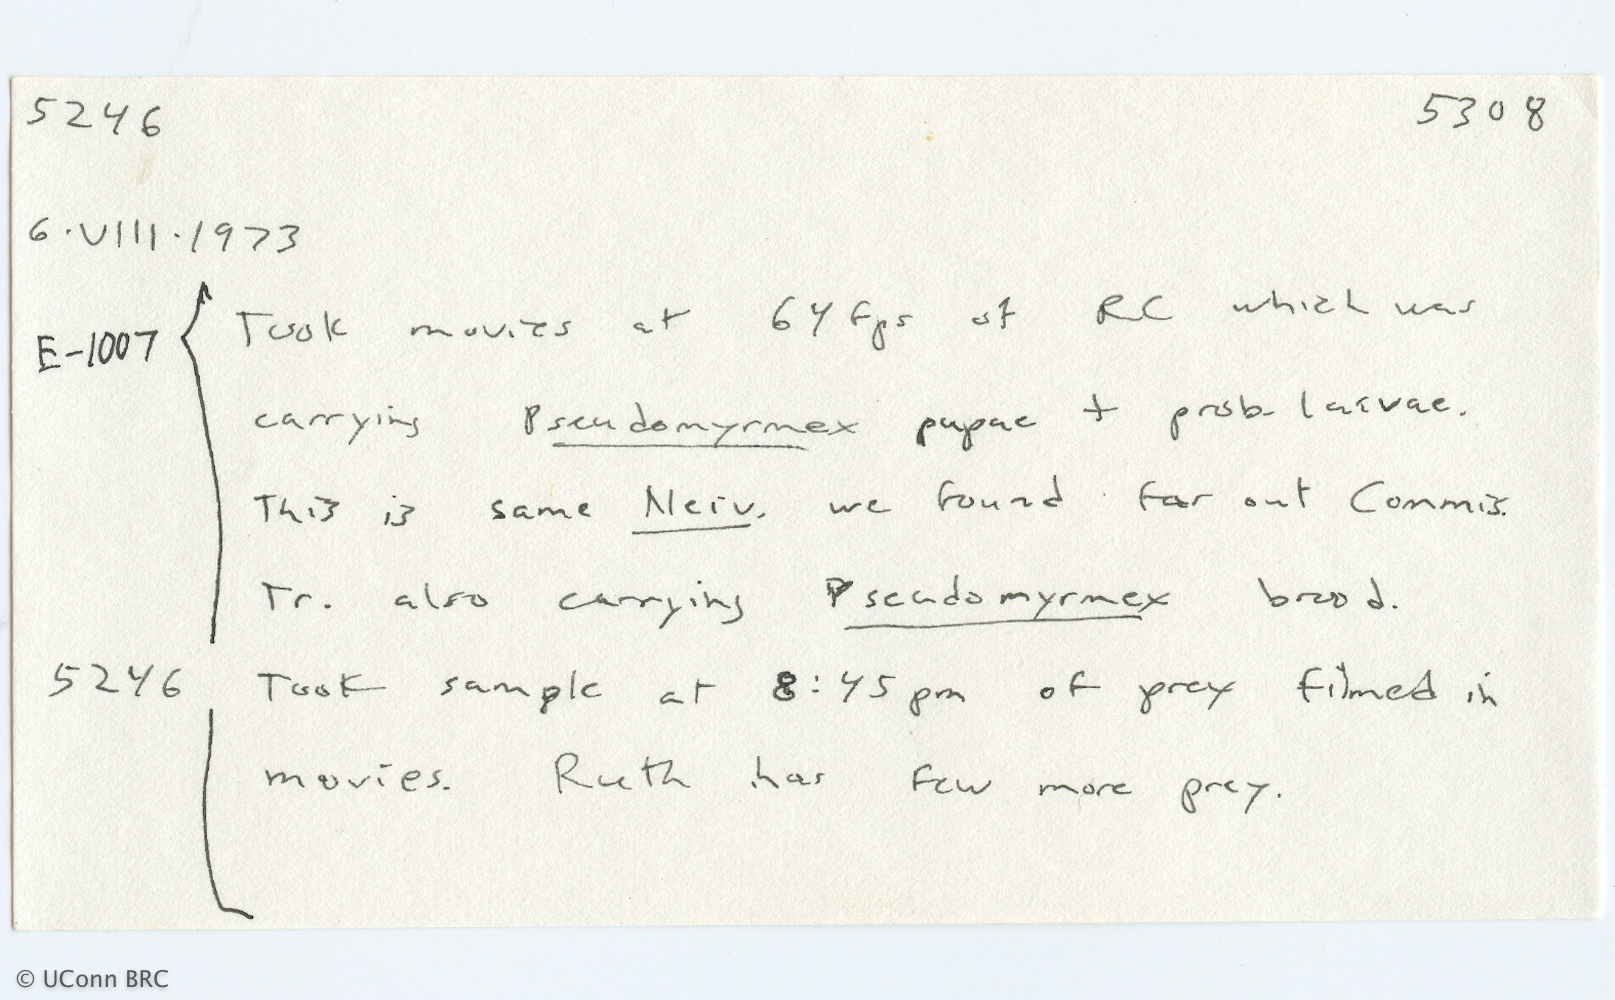 5246 5308
6·VIII·1973
E-1007 Took movies at 64 fps of RC which was
carrying Pseudomyrmex pupae + prob. larvae.
This is same Neiv. we found far out Commis.
Tr. also carrying Pseudomyrmex brood.
5246 Took sample at 8:45 pm of prey filmed in
movies. Ruth has few more prey.
© UConn BRC